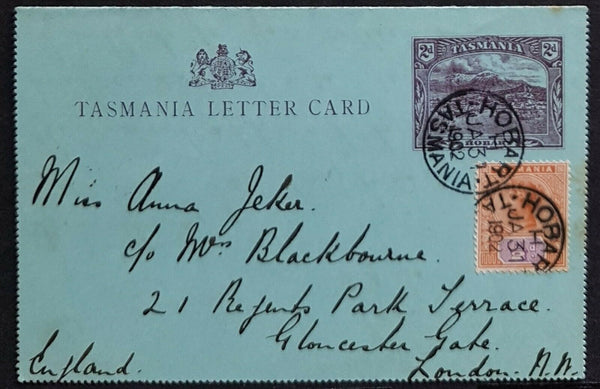 2d TASMANIA 2d
TASMANIA LETTER CARD
HOBART
HOBART·TASMANIA·
H
JA 31
1902
HOBART·TA
H
JA 31
1902
Miss Anna Jeker.
c/o Mrs Blackbourne.
21 Regents Park Terrace.
Gloucester Gate.
England.
London. N.W.